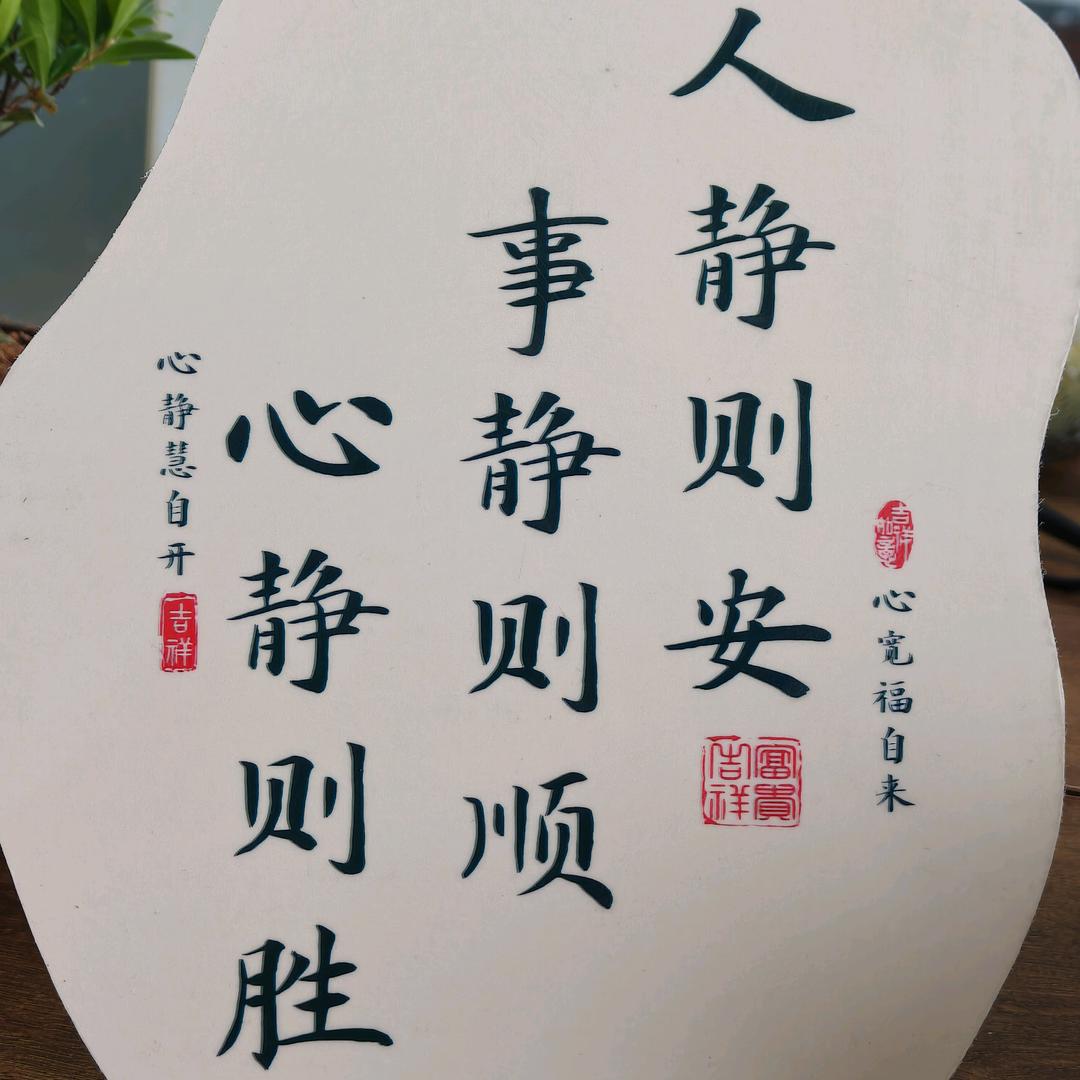 吉祥如意
心宽福自来
人静则安
富貴吉祥
事静则顺
心静则胜
心静慧自开
吉祥